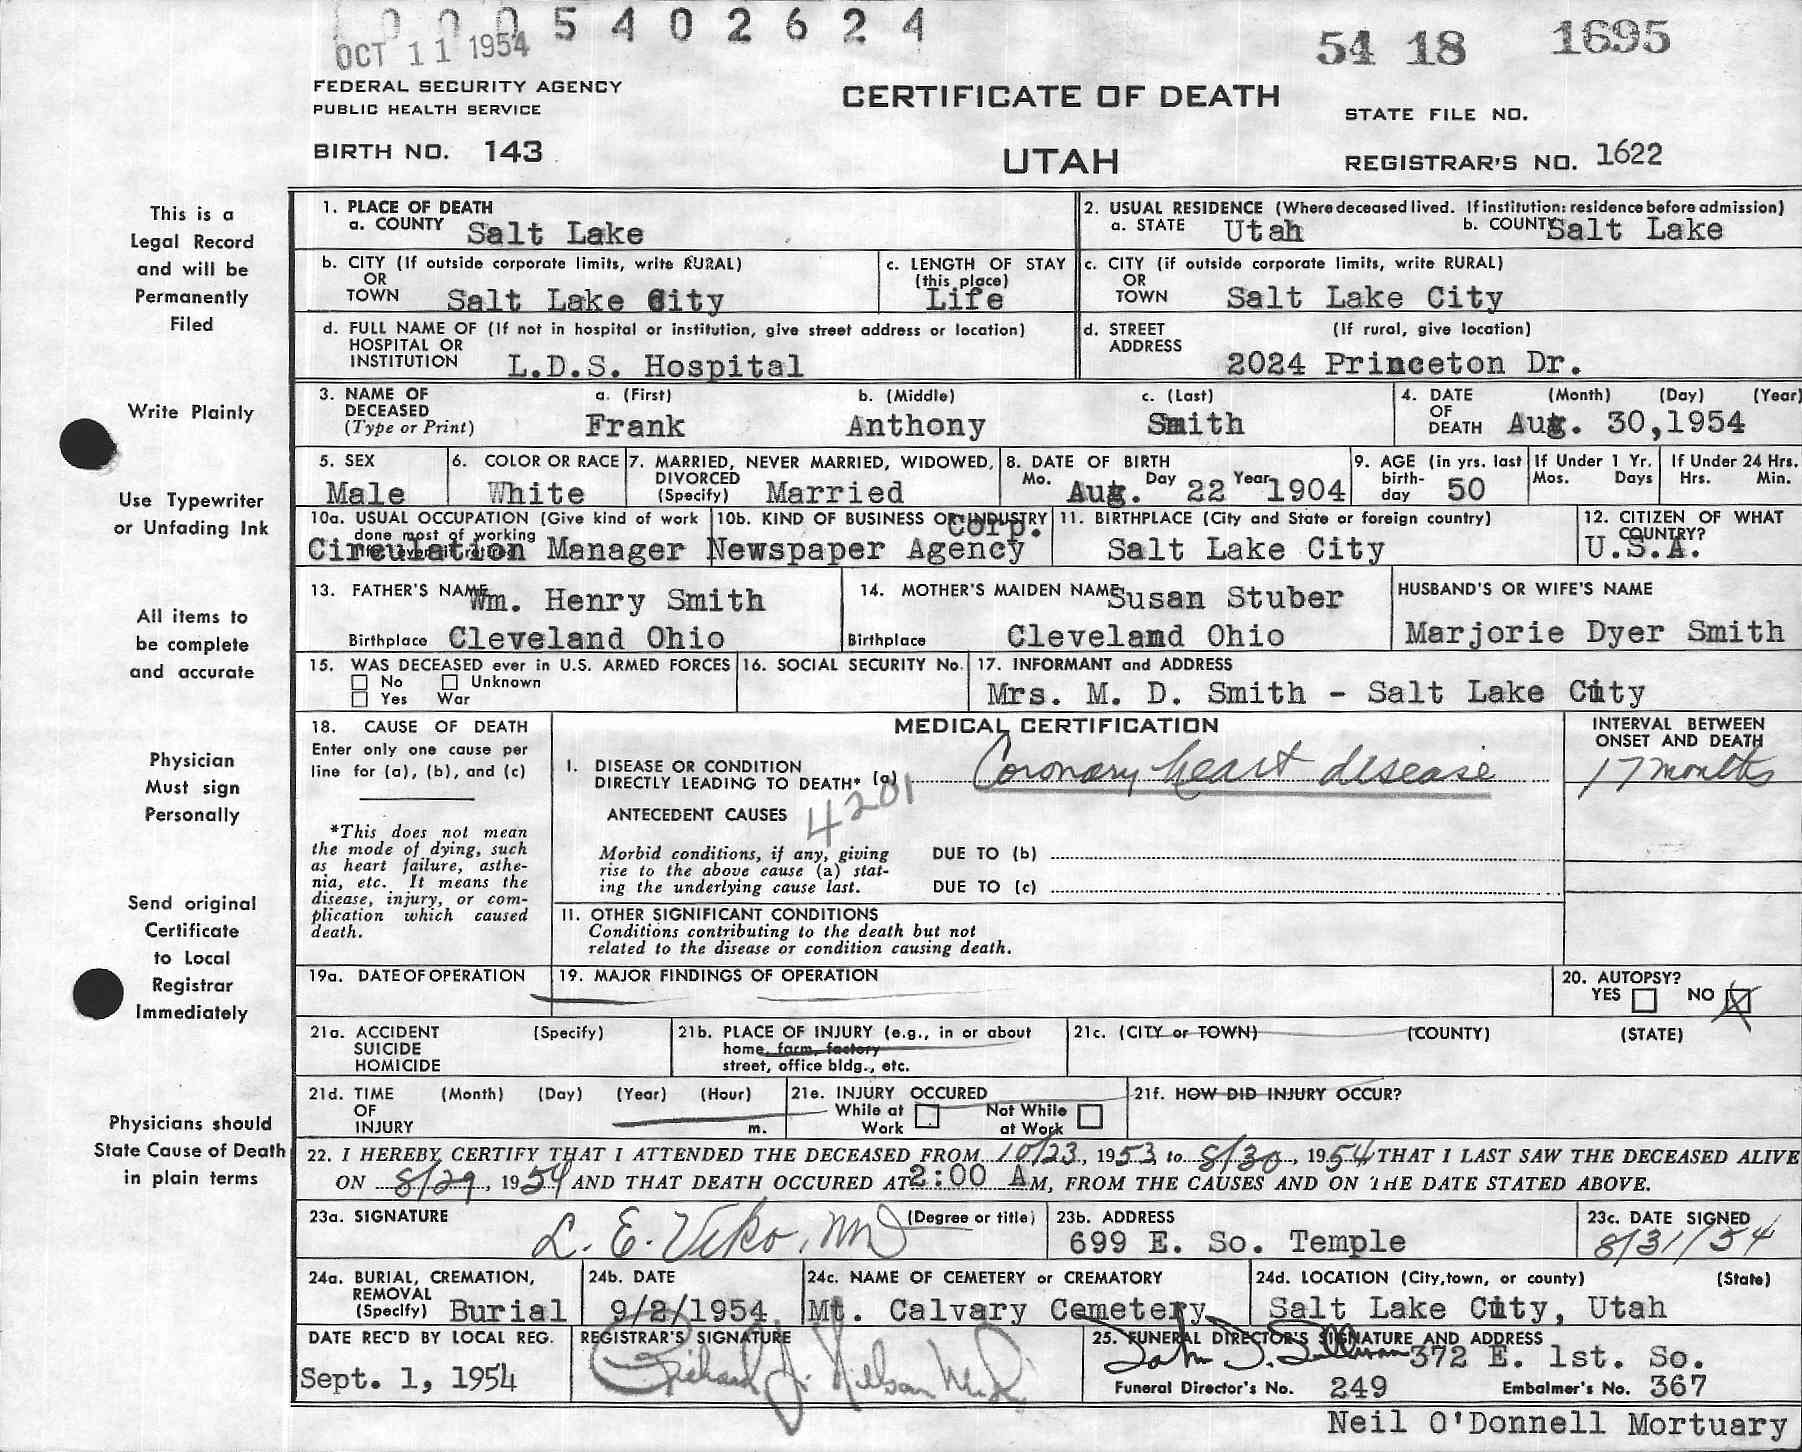 0005402624
OCT 11 1954
54 18 1695
FEDERAL SECURITY AGENCY
PUBLIC HEALTH SERVICE
CERTIFICATE OF DEATH
STATE FILE NO.
BIRTH NO. 143
UTAH
REGISTRAR'S NO. 1622
This is a
Legal Record
and will be
Permanently
Filed
Write Plainly
Use Typewriter
or Unfading Ink
All items to
be complete
and accurate
Physician
Must sign
Personally
Send original
Certificate
to Local
Registrar
Immediately
Physicians should
State Cause of Death
in plain terms
1. PLACE OF DEATH
a. COUNTY Salt Lake
2. USUAL RESIDENCE (Where deceased lived. If institution: residence before admission)
a. STATE Utah b. COUNTY Salt Lake
b. CITY (If outside corporate limits, write RURAL)
OR
TOWN Salt Lake City
c. LENGTH OF STAY
(this place)
Life
c. CITY (if outside corporate limits, write RURAL)
OR
TOWN Salt Lake City
d. FULL NAME OF (If not in hospital or institution, give street address or location)
HOSPITAL OR
INSTITUTION L.D.S. Hospital
d. STREET (If rural, give location)
ADDRESS
2024 Princeton Dr.
3. NAME OF a. (First) b. (Middle) c. (Last)
DECEASED
(Type or Print) Frank Anthony Smith
4. DATE (Month) (Day) (Year)
OF
DEATH Aug. 30,1954
5. SEX
Male
6. COLOR OR RACE
White
7. MARRIED, NEVER MARRIED, WIDOWED,
DIVORCED
(Specify) Married
8. DATE OF BIRTH
Mo. Aug. Day 22 Year 1904
9. AGE (in yrs. last
birth-
day 50
If Under 1 Yr.
Mos. Days
If Under 24 Hrs.
Hrs. Min.
10a. USUAL OCCUPATION (Give kind of work
done most of working
Circulation Manager
10b. KIND OF BUSINESS OR INDUSTRY
Corp.
Newspaper Agency
11. BIRTHPLACE (City and State or foreign country)
Salt Lake City
12. CITIZEN OF WHAT
COUNTRY?
U.S.A.
13. FATHER'S NAME Wm. Henry Smith
Birthplace Cleveland Ohio
14. MOTHER'S MAIDEN NAME Susan Stuber
Birthplace Cleveland Ohio
HUSBAND'S OR WIFE'S NAME
Marjorie Dyer Smith
15. WAS DECEASED ever in U.S. ARMED FORCES
No Unknown
Yes War
16. SOCIAL SECURITY No.
17. INFORMANT and ADDRESS
Mrs. M. D. Smith - Salt Lake City
18. CAUSE OF DEATH
Enter only one cause per
line for (a), (b), and (c)
*This does not mean
the mode of dying, such
as heart failure, asthe-
nia, etc. It means the
disease, injury, or com-
plication which caused
death.
MEDICAL CERTIFICATION
I. DISEASE OR CONDITION
DIRECTLY LEADING TO DEATH* (a) Coronary heart disease
4201
ANTECEDENT CAUSES
Morbid conditions, if any, giving
rise to the above cause (a) stat-
ing the underlying cause last.
DUE TO (b)
DUE TO (c)
II. OTHER SIGNIFICANT CONDITIONS
Conditions contributing to the death but not
related to the disease or condition causing death.
INTERVAL BETWEEN
ONSET AND DEATH
17 months
19a. DATE OF OPERATION
19. MAJOR FINDINGS OF OPERATION
20. AUTOPSY?
YES NO X
21a. ACCIDENT (Specify)
SUICIDE
HOMICIDE
21b. PLACE OF INJURY (e.g., in or about
home, farm, factory
street, office bldg., etc.
21c. (CITY or TOWN) (COUNTY) (STATE)
21d. TIME (Month) (Day) (Year) (Hour)
OF
INJURY m.
21e. INJURY OCCURED
While at Work
Not While at Work
21f. HOW DID INJURY OCCUR?
22. I HEREBY CERTIFY THAT I ATTENDED THE DECEASED FROM 10/23, 1953 to 8/30, 1954 THAT I LAST SAW THE DECEASED ALIVE
ON 8/29, 1954 AND THAT DEATH OCCURED AT 2:00 A M, FROM THE CAUSES AND ON THE DATE STATED ABOVE.
23a. SIGNATURE (Degree or title)
L. E. Viko, MD
23b. ADDRESS
699 E. So. Temple
23c. DATE SIGNED
8/31/54
24a. BURIAL, CREMATION,
REMOVAL
(Specify) Burial
24b. DATE
9/2/1954
24c. NAME OF CEMETERY or CREMATORY
Mt. Calvary Cemetery
24d. LOCATION (City,town, or county) (State)
Salt Lake City, Utah
DATE REC'D BY LOCAL REG.
Sept. 1, 1954
REGISTRAR'S SIGNATURE
Richard J. Nelson
25. FUNERAL DIRECTOR'S SIGNATURE AND ADDRESS
John J. Sullivan 372 E. 1st. So.
Funeral Director's No. 249 Embalmer's No. 367
Neil O'Donnell Mortuary